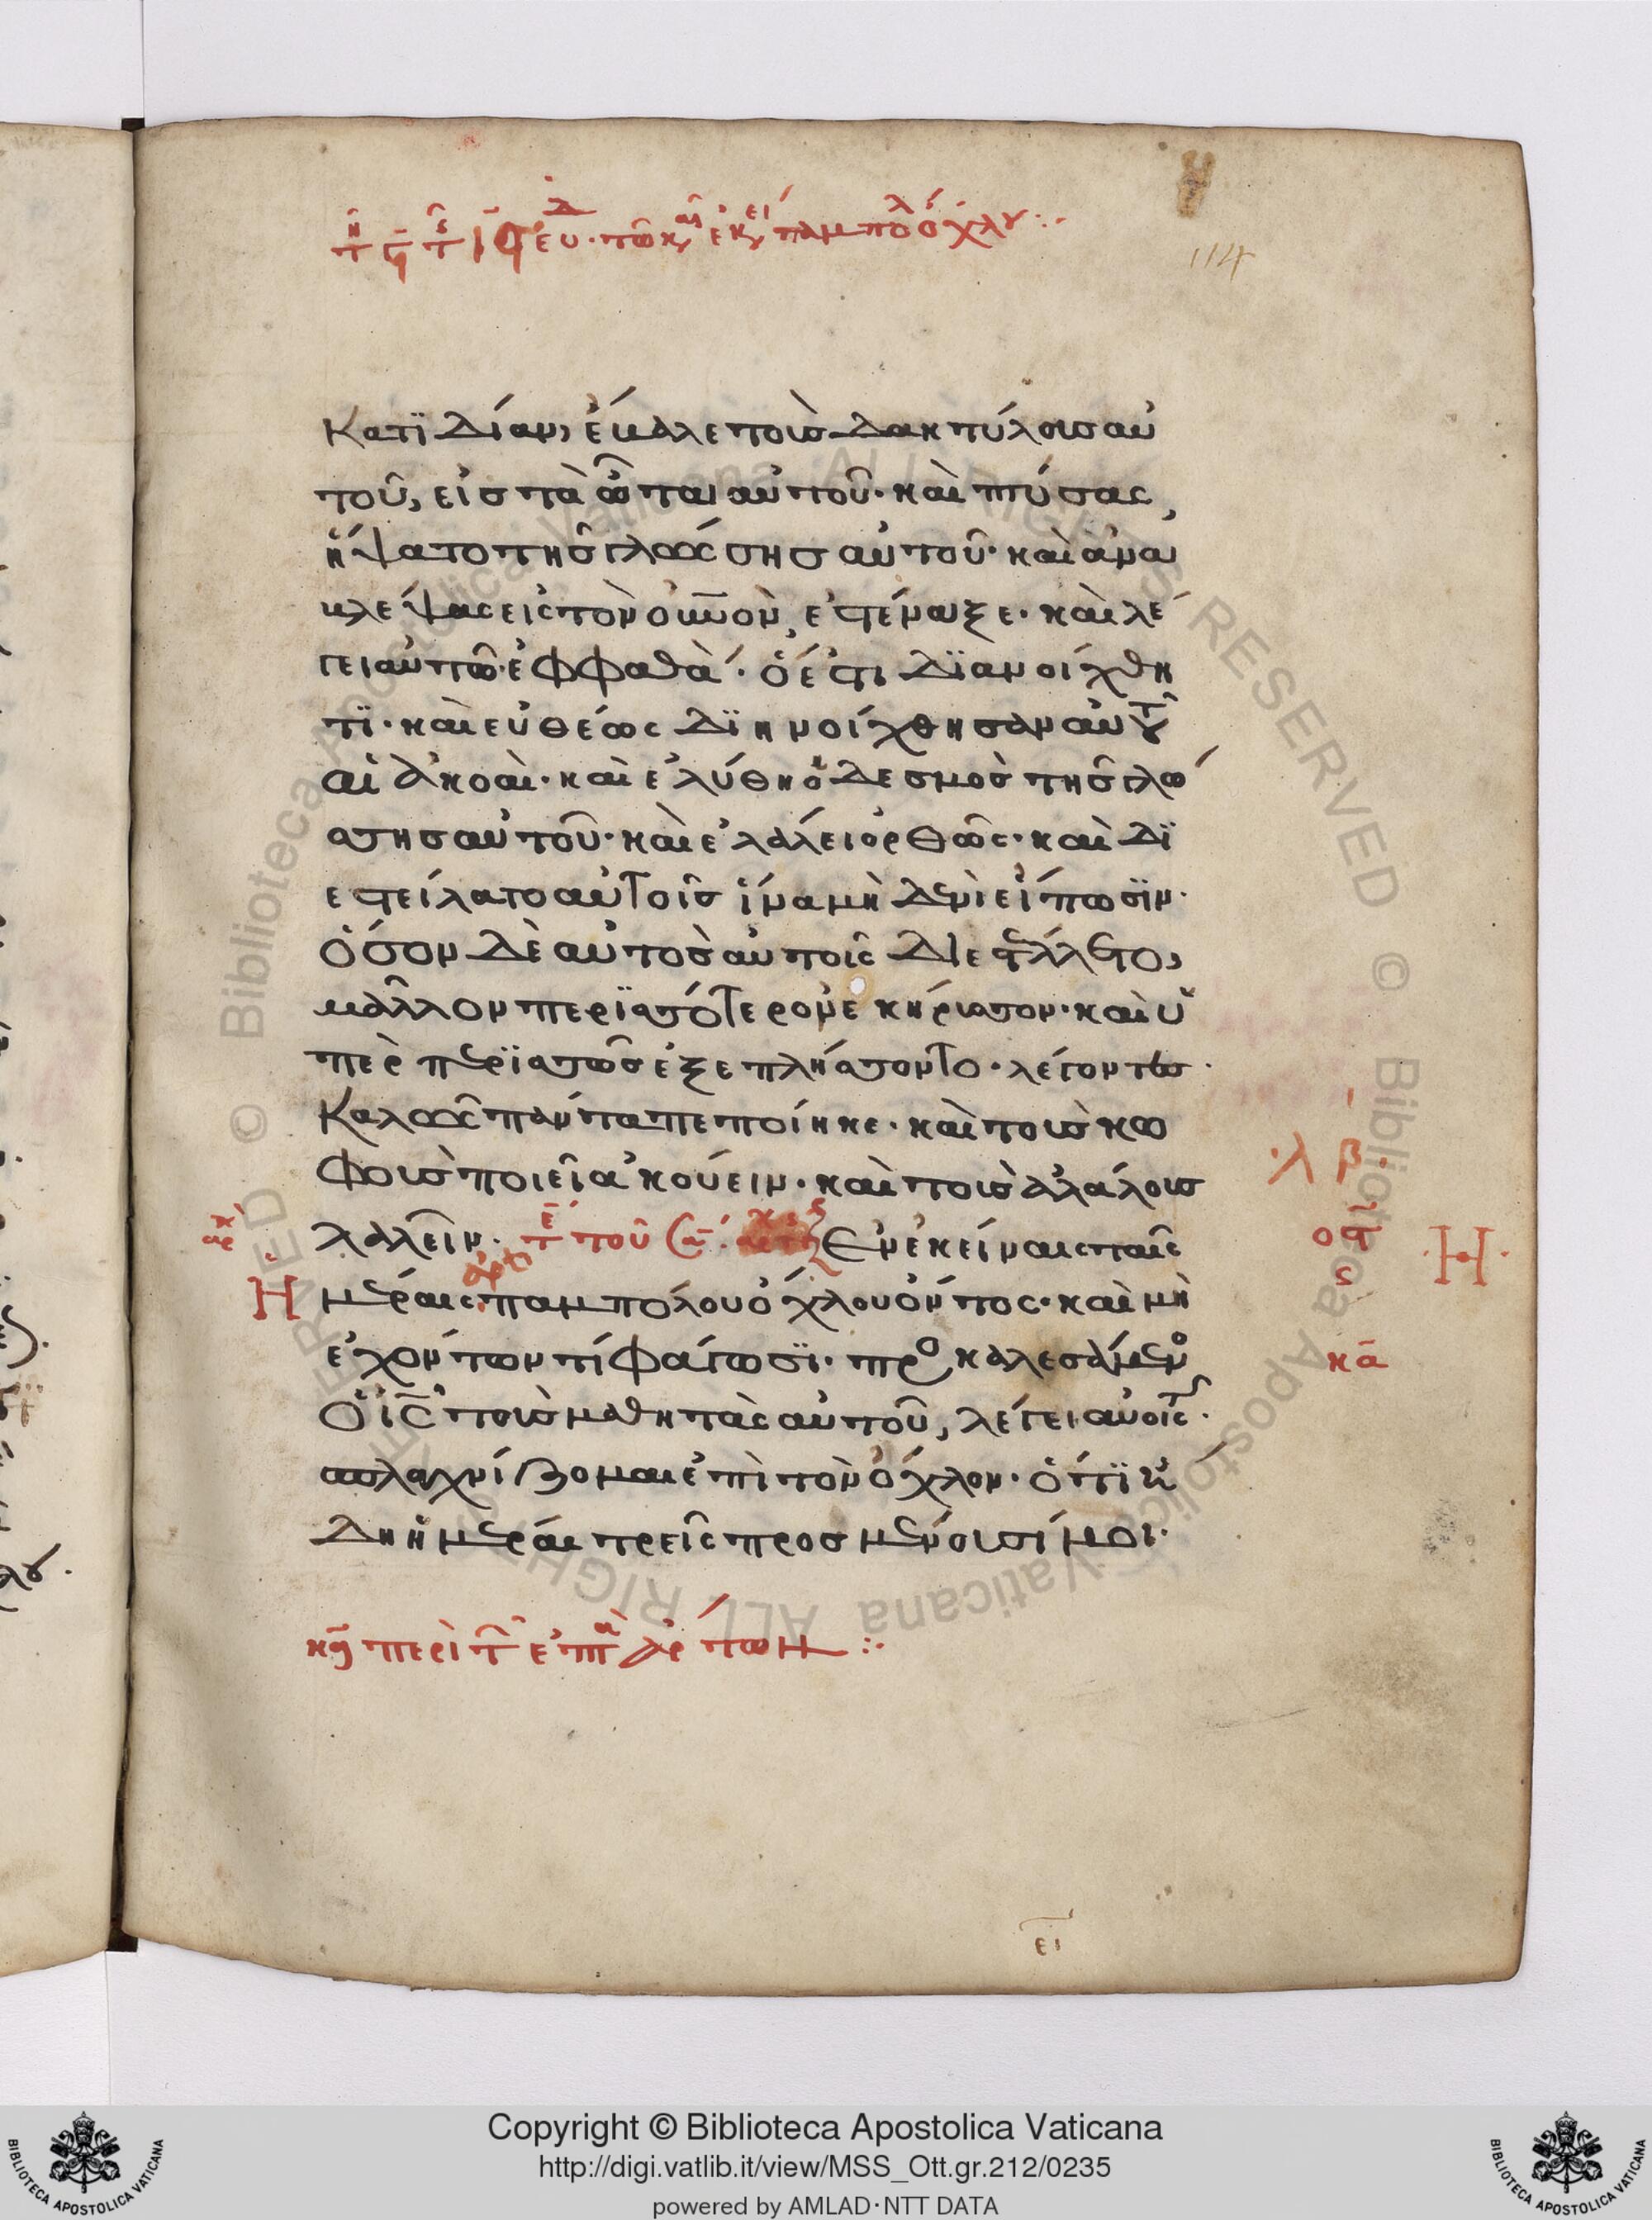 114
κατϊδίαν, ἔβαλε τοὺς δακτύλους αὐ
τοῦ, εἰς τὰ ὦτα αὐτοῦ· καὶ πτύσας,
ἥψατο τῆς γλώσσης αὐτοῦ· καὶ ἀνα
βλέψας εἰς τὸν οὐνον, ἐστέναξε· καὶ λέ
γει αὐτῶ· ἐφφαθά· ὅ ἐστι διανοίχθη
τϊ· καὶ εὐθέως διηνοίχθησαν αὐτοῦ
αἱ ἀκοαί· καὶ ἐλύθη ὁ δεσμὸς τῆς γλώ
σσης αὐτοῦ· καὶ ἐλάλει ὀρθῶς· καὶ δϊ
εστείλατο αὐτοῖς ἵνα μηδενὶ εἴπωσϊν·
ὅσον δὲ αὐτὸς αὐτοῖς διεστέλλετο,
μᾶλλον περϊσσότερον ἐκήρυσσον· καὶ ὑ
πὲρ περϊσσῶς ἐξεπλήσσοντο· λέγοντες·
καλῶς πάντα πεποίηκε· καὶ τοὺς κω
φοὺς ποιεῖ ἀκούειν· καὶ τοὺς ἀλάλους
λαλεῖν. τ τοῦ Ἐν ἐκείναις ταῖς
ἡμέραις παμπόλου ὄχλου ὄντος· καὶ μὴ
ἐχόντων τί φάγωσϊ· προσκαλεσάμενος
ὁ ις τοὺς μαθητὰς αὐτοῦ, λέγει αὐτοῖς·
σπλαχνίζομαι ἐπὶ τὸν ὄχλον· ὅτϊ ἤ
δη ἡμέραι τρεῖς προσμένουσί μοι·
κα
κγ περὶ τ ἑπτὰ ἄρτων :·
ει
Copyright © Biblioteca Apostolica Vaticana
http://digi.vatlib.it/view/MSS_Ott.gr.212/0235
powered by AMLAD·NTT DATA
BIBLIOTECA APOSTOLICA VATICANA
BIBLIOTECA APOSTOLICA VATICANA